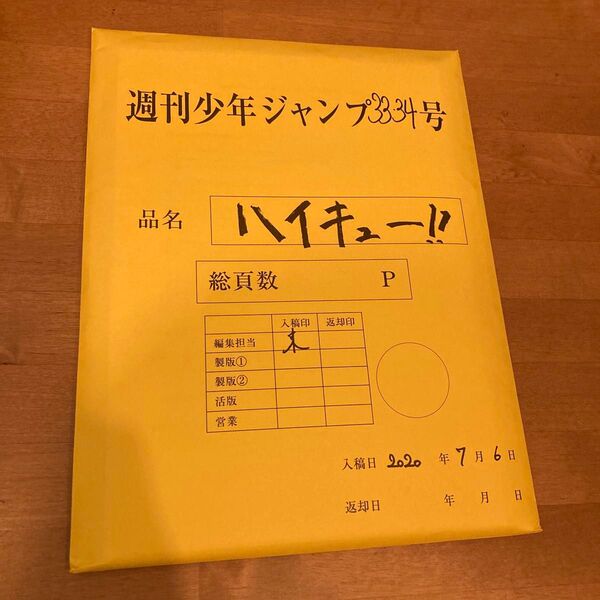 週刊少年ジャンプ33·34号
品名 ハイキュー!!
総頁数 P
入稿印 返却印
編集担当 本
製版①
製版②
活版
営業
入稿日 2020 年 7 月 6 日
返却日 年 月 日